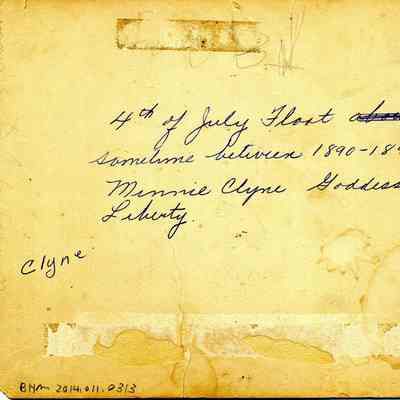 4th of July Float
sometime between 1890-189
Minnie Clyne Goddess
Liberty.
Clyne
BHM 2014.011.0313